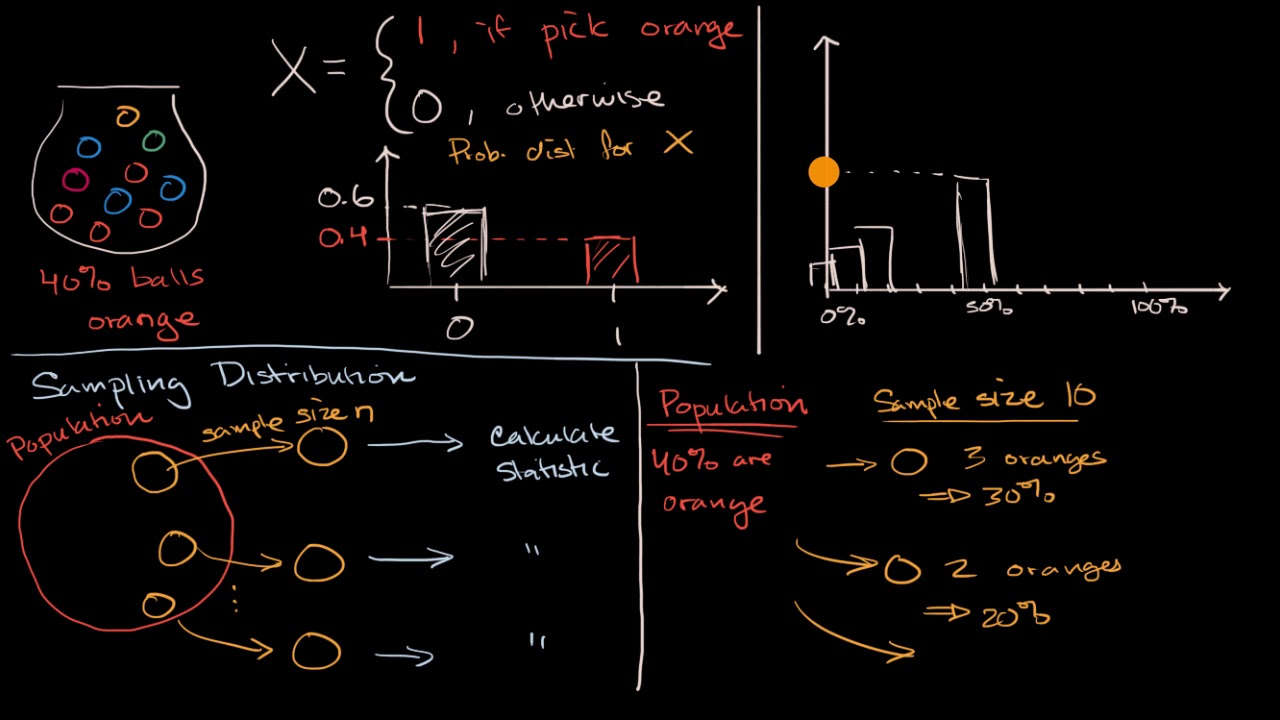 X = { 1, if pick orange
0, otherwise
Prob. dist for X
0.6
0.4
0 1
40% balls
orange
0% 50% 100%
Sampling Distribution
Population
sample size n
Calculate
Statistic
"
"
Population
40% are
orange
Sample size 10
→ 3 oranges
⇒ 30%
2 oranges
⇒ 20%